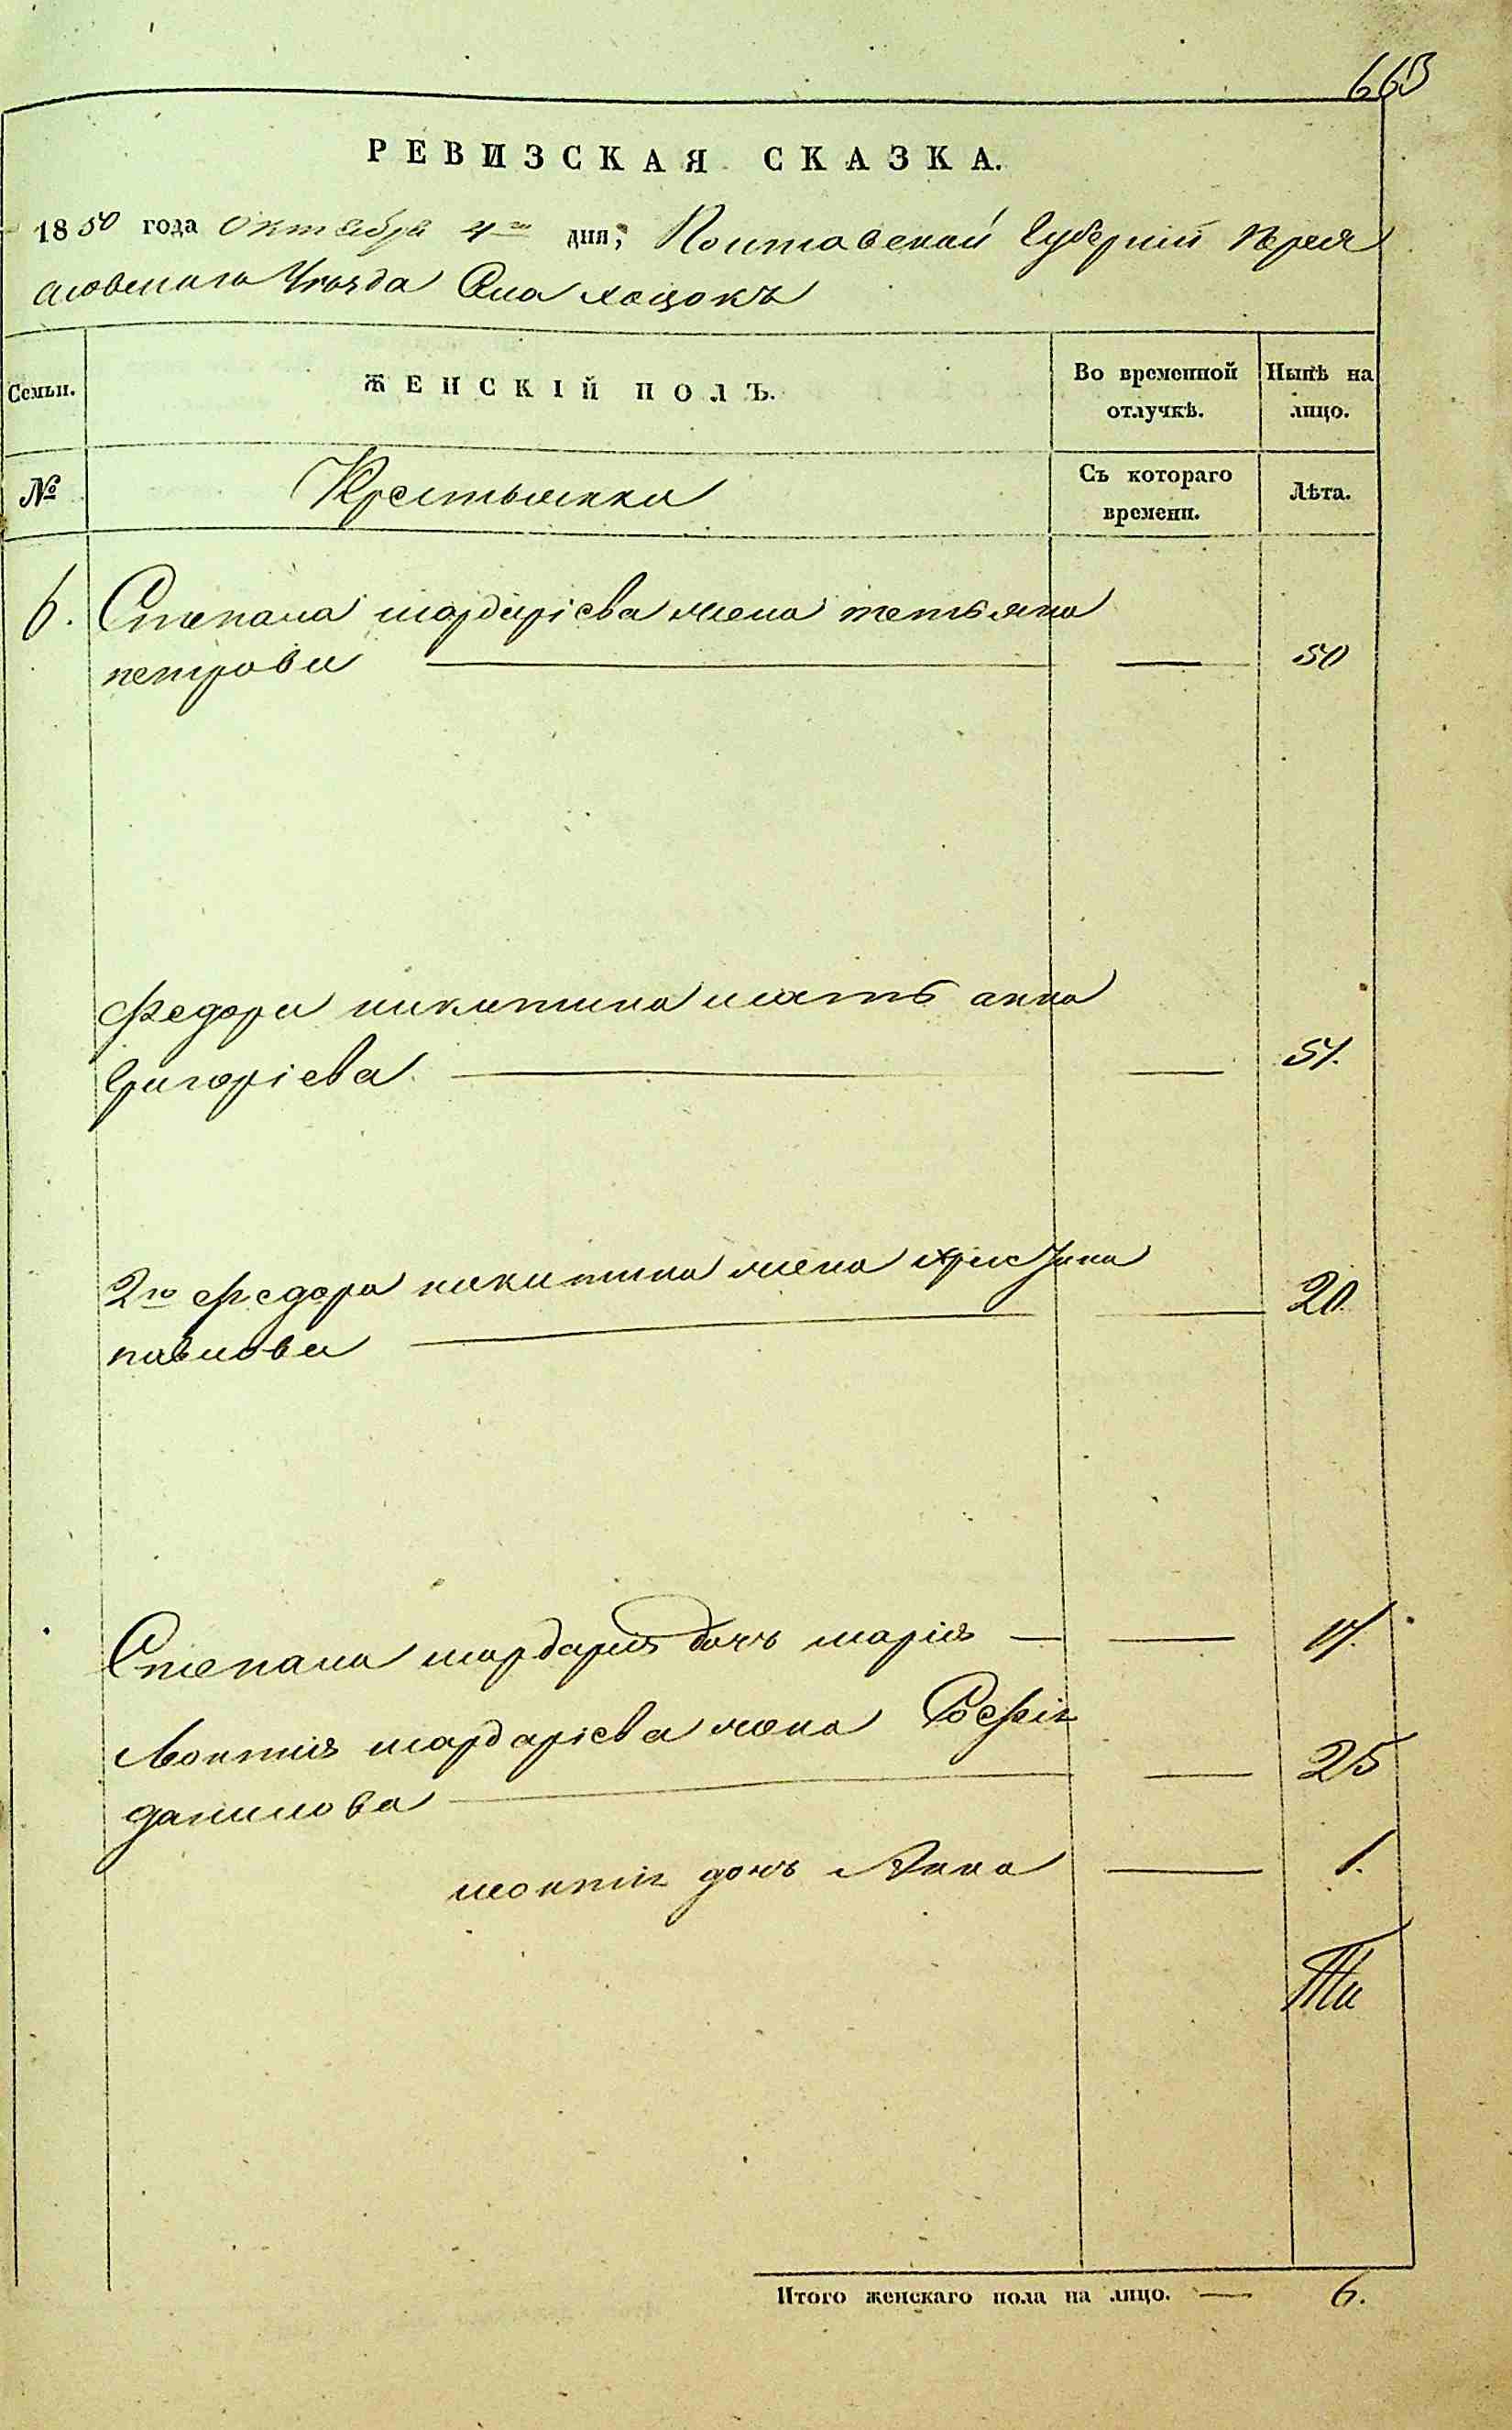 663
РЕВИЗСКАЯ СКАЗКА.
1850 года Октября 4го дня, Полтавской Губерніи Перея
словскаго Уезда Села хоцокъ
Семьи. ЖЕНСКІЙ ПОЛЪ. Во временной отлучкѣ. Нынѣ на лицо.
№ Крестьянки Съ котораго времени. Лѣта.
6. Степана мардарiева жена тетьяна
петрова — — 50
Федора никитина мать анна
Григорiева — — 57.
2го Федора никитина жена христина
павлова — — 20
Степана мардарія дочь марія — — 17.
Леонтія мардарiева жена
данилова — — 25
леонтія дочь Анна — 1.
Итого женскаго пола на лицо. — 6.